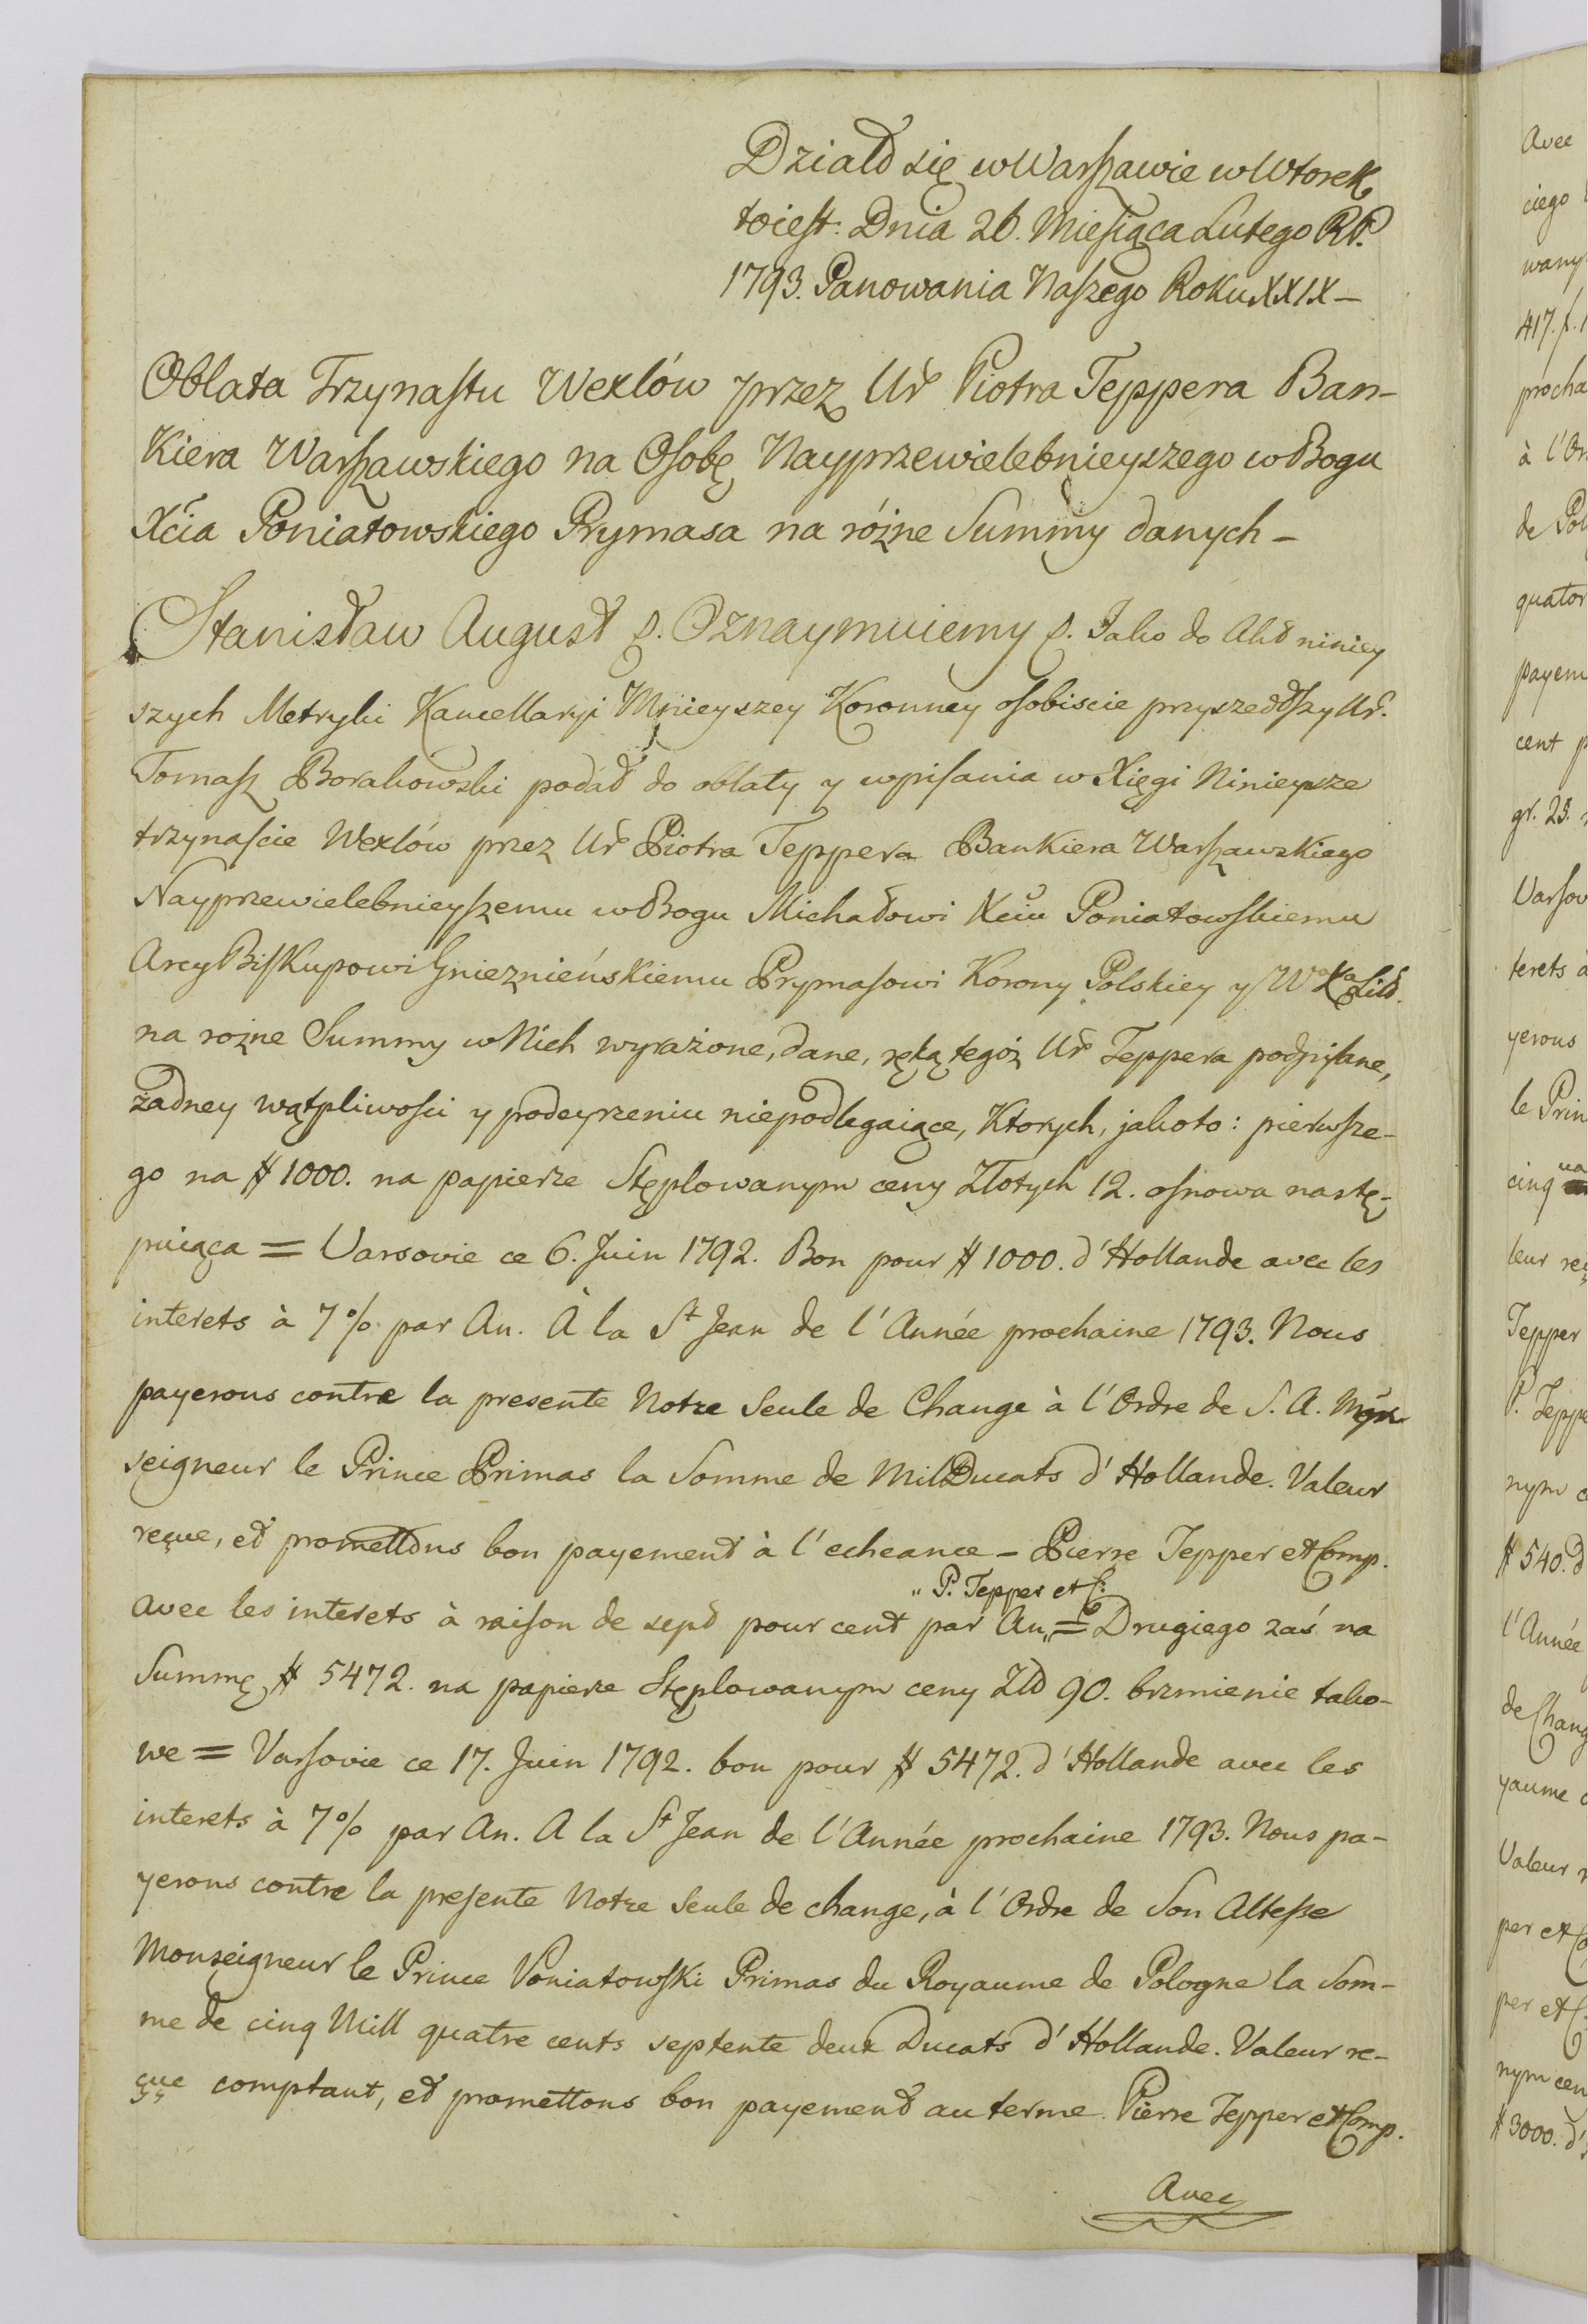 Działo się w Warszawie w Wtorek
toiest: Dnia 26. Miesiąca Lutego RP.
1793. Panowania Naszego Roku XXIX –
Oblata Trzynastu Wexlów przez Ur Piotra Teppera Ban-
kiera Warszawskiego na Osobę Nayprzewielebnieyszego w Bogu
Xcia Poniatowskiego Prymasa na różne Summy danych –
Stanisław August &. Oznaymuiemy &. Jako do Akt niniey
szych Metryki Kancellaryi Mnieyszey Koronney osobiscie przyszedłszy Ur.
Tomasz Borakowski podał do oblaty y wpisania w Xięgi Ninieysze
trzynaście Wexlów przez Ur Piotra Teppera Bankiera Warszawskiego
Nayprzewielebnieyszemu w Bogu Michałowi Xciu Poniatowskiemu
ArcyBiskupowi Gnieznieńskiemu Prymasowi Korony Polskiey y W Xa Lit.
na rozne Summy w Nich wyrażone, dane, ręką tegoż Ur Teppera podpisane,
żadney wątpliwości y podeyrzeniu niepodlegaiące, Ktorych, jakoto: pierwsze-
go na # 1000. na papierze Stęplowanym ceny Złotych 12. osnowa nastę-
puiąca = Varsovie ce 6. Juin 1792. Bon pour # 1000. d'Hollande avec les
interets à 7 % par An. À la St Jean de l'Année prochaine 1793. Nous
payerons contre la presente Notre Seule de Change à l'Ordre de S. A. Mon
seigneur le Prince Primas la Somme de Mill Ducats d'Hollande. Valeur
reçue, et promettons bon payement à l'echeance – Pierre Tepper et Comp.
„ P. Tepper et C:
avec les interets à raison de sept pour cent par An „ = Drugiego zaś na
Summę # 5472. na papierze Stęplowanym ceny Zlt 90. brzmienie tako-
we = Varsovie ce 17. Juin 1792. bon pour # 5472. d'Hollande avec les
interets à 7 % par An. A la St Jean de l'Année prochaine 1793. Nous pa-
yerons contre la presente Notre Seule de change, à l'Ordre de Son Altesse
Monseigneur le Prince Poniatowski Primas du Royaume de Pologne la Som-
me de cinq Mill quatre cents septente deux Ducats d'Hollande. Valeur re-
çue comptant, et promettons bon payement au terme. Pierre Tepper et Comp.
Avec
Avec
ciego
wany
417. f.
procha
à l'Or
de Pol
quator
payem
cent p
gr. 23.
Varsov
terets à
yerons
le Prin
cinq
leur re
Tepper
P. Teppe
nym c
# 540. d
l'Année
de Chang
yaume d
Valeur r
per et Co
per et C.
nym cen
# 3000. d'